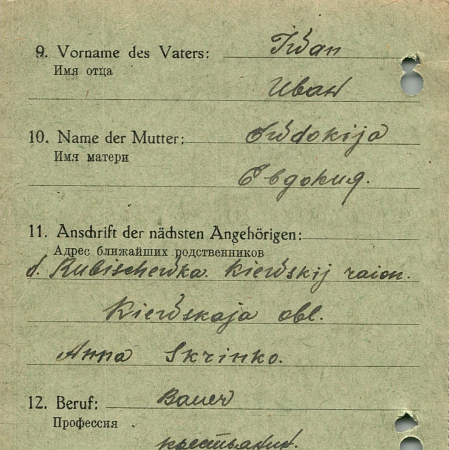 9. Vorname des Vaters: Iwan
Имя отца
Иван
10. Name der Mutter: Ewdokija
Имя матери
Евдокия.
11. Anschrift der nächsten Angehörigen:
Адрес ближайших родственников
d. Rubischewka Kiewskij raion.
Kiewskaja obl.
Anna Skrinko.
12. Beruf: Bauer
Профессия
крестьянин.